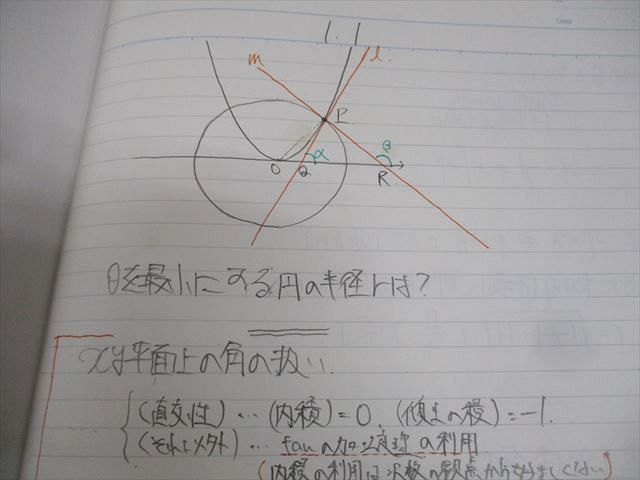 1.1
m
l.
P
α
β
O
Q
R
θを最小にする円の半径rは?
xy平面上の角の扱い.
(直交性)…(内積)=0,(傾きの積)=-1.
(それ以外)…tanの加法定理の利用
(内積の利用は次数の観点から